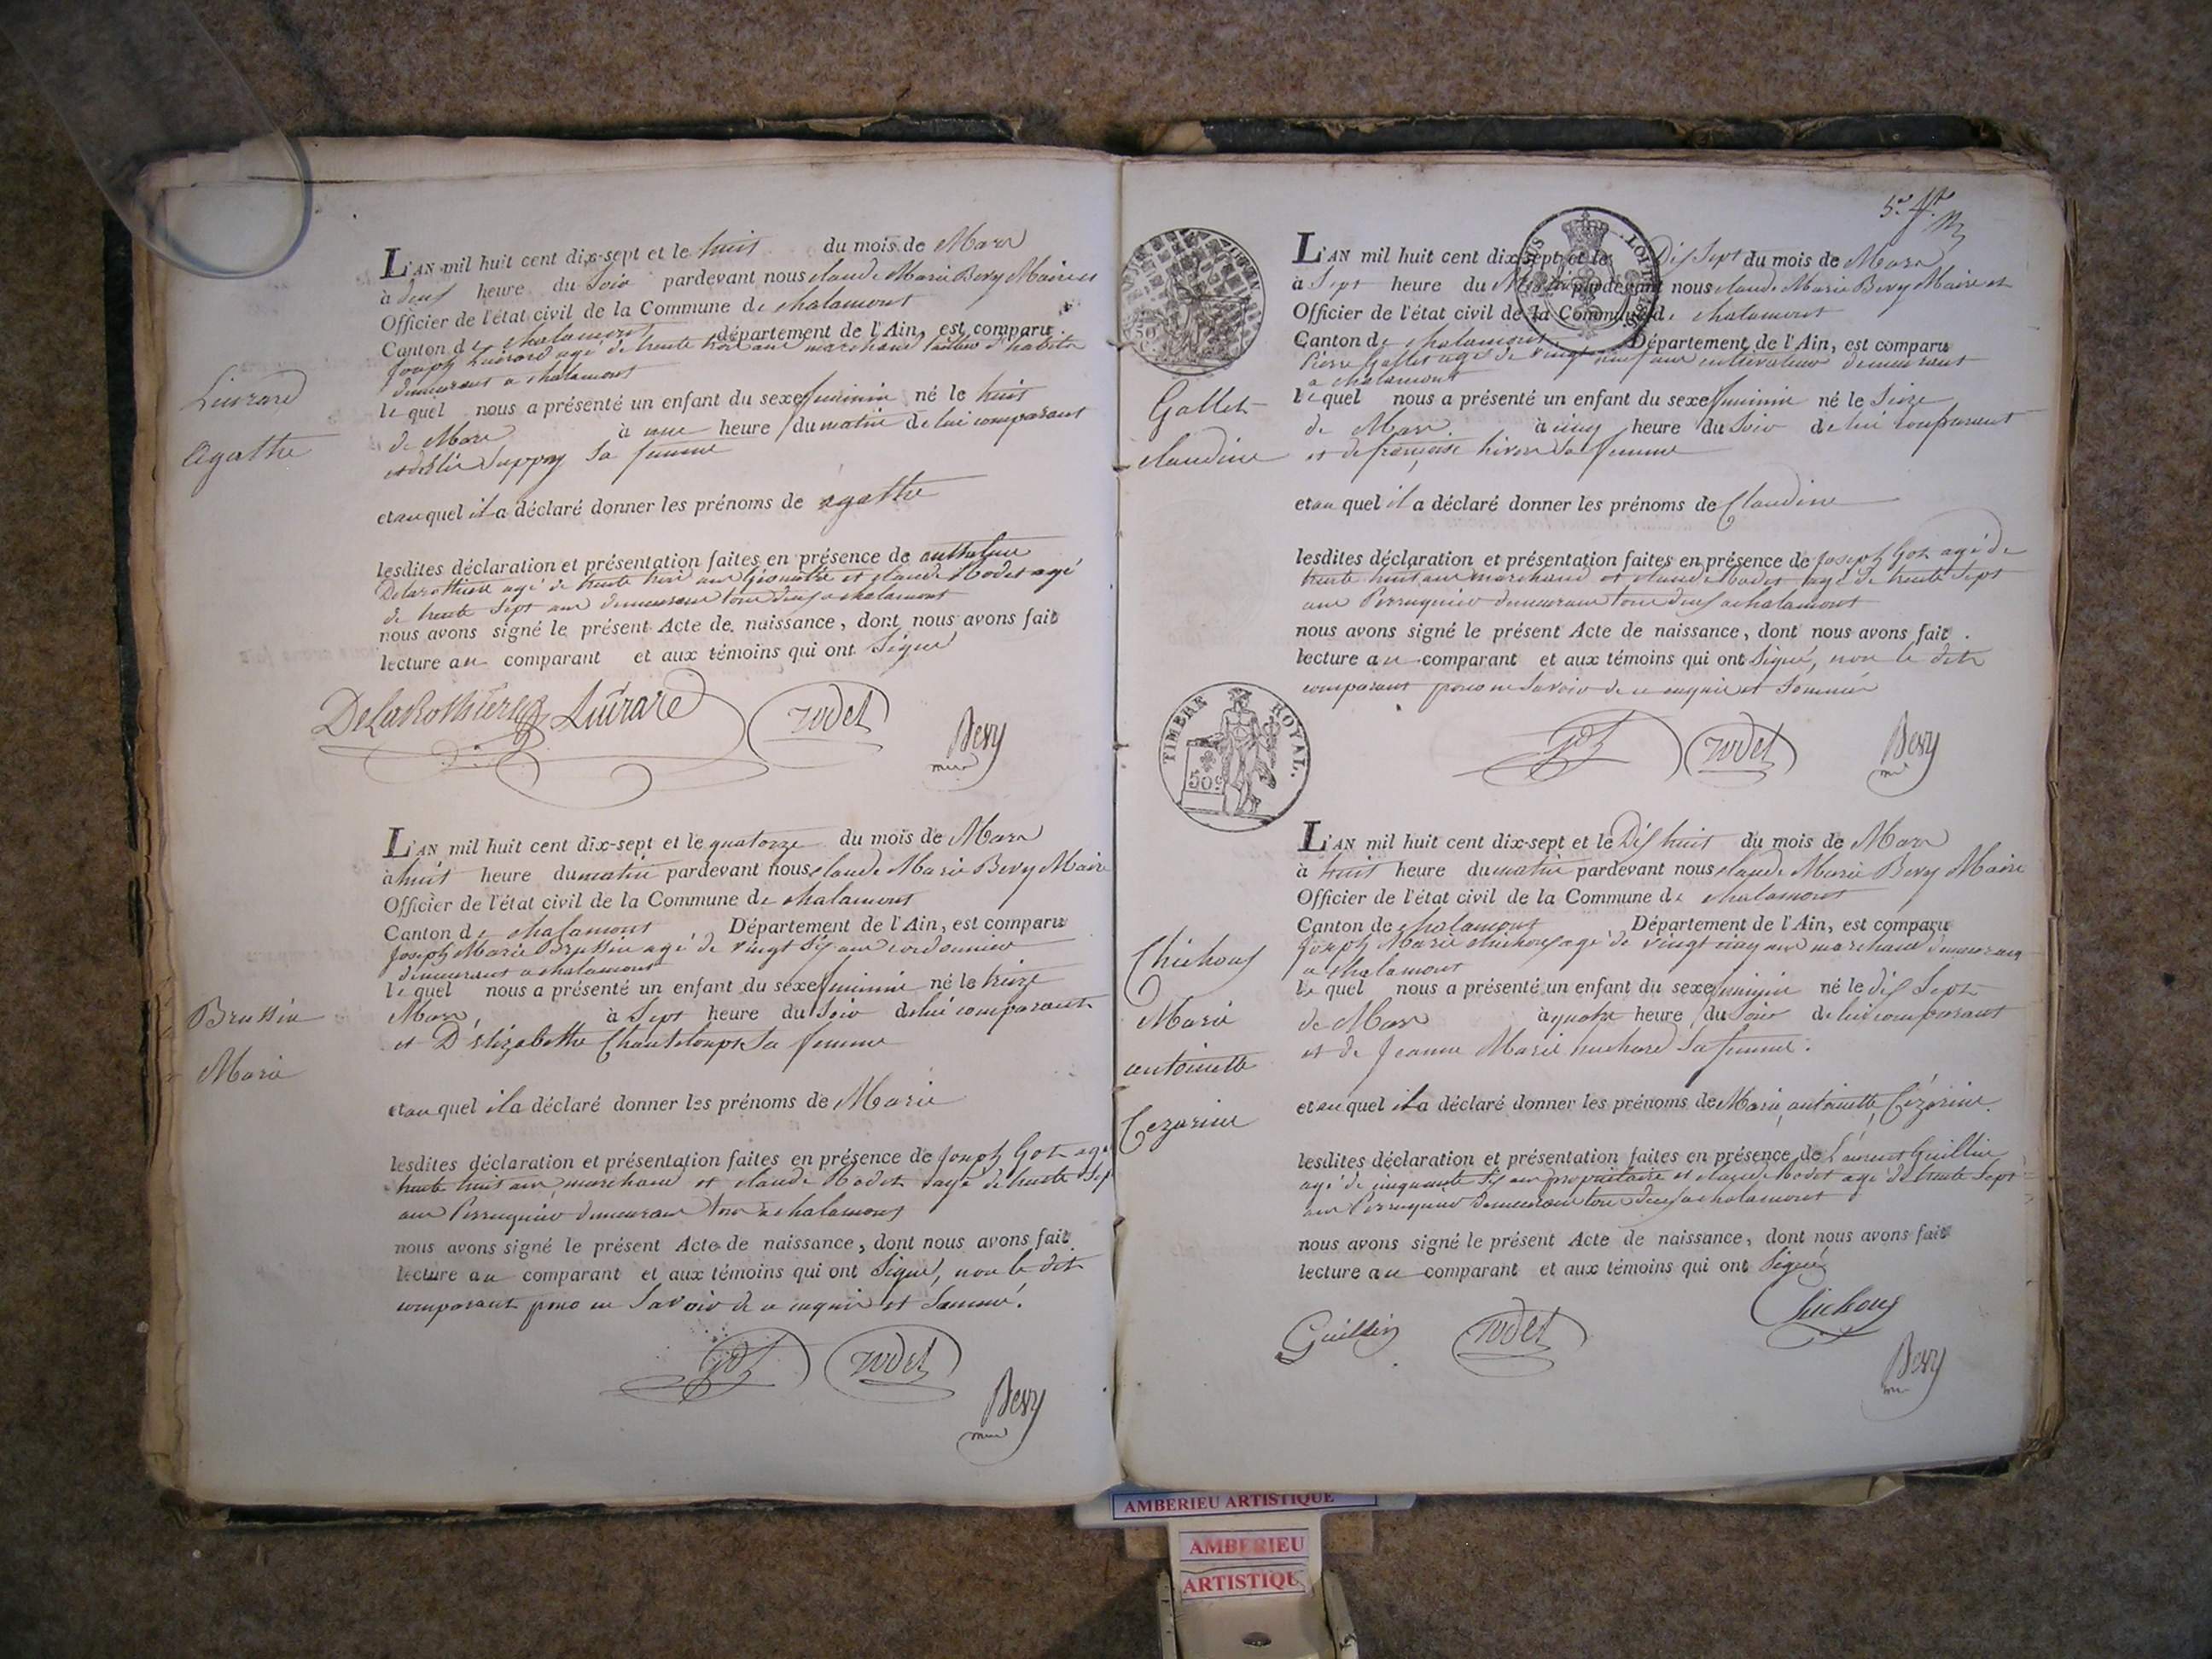 L'AN mil huit cent dix-sept et le huit du mois de Mars
à deux heure du Soir pardevant nous claude Marie Bevy Maire et
Officier de l'état civil de la Commune de chalamont
Canton de chalamont département de l'Ain, est comparu
Joseph Luirard agé de trente trois ans marchand tailleur d'habits
demeurant a chalamont
Luirard
le quel nous a présenté un enfant du sexe feminin né le huit
de Mars à une heure du matin de lui comparant
Agathe
sa femme
et au quel il a déclaré donner les prénoms de agathe
lesdites déclaration et présentation faites en présence de anthelme
Delarothiere agé de trente trois ans Géomettre et claude Rodet agé
de trente Sept ans demeurant tous deux a chalamont
nous avons signé le présent Acte de naissance, dont nous avons fait
lecture au comparant et aux témoins qui ont Signé
DeLaRothiere Luirard rodet
Bevy
L'AN mil huit cent dix-sept et le quatorze du mois de Mars
à huit heure du matin pardevant nous claude Marie Bevy Maire
Officier de l'état civil de la Commune de chalamont
Canton de chalamont Département de l'Ain, est comparu
Joseph Marie Brussin agé de vingt six ans cordonnier
demeurant a chalamont
le quel nous a présenté un enfant du sexe feminin né le treize
Brussin
Mars, à Sept heure du Soir de lui comparant
et D'élizabethe Chanteloups Sa femme
Marie
et au quel il a déclaré donner les prénoms de Marie
lesdites déclaration et présentation faites en présence de Joseph Got agé
trente huit ans marchand et claude Rodet agé de trente Sep
ans Perruquier demeurant tous a chalamont
nous avons signé le présent Acte de naissance, dont nous avons fait
lecture au comparant et aux témoins qui ont Signé, non le dit
comparant pour ne Savoir de ce enquis et Sommé.
got rodet
Bevy
5e
L'AN mil huit cent dix-sept et le Dix Sept du mois de Mars
à Sept heure du pardevant nous claude Marie Bevy Maire et
Officier de l'état civil de la Commune de chalamont
Canton de chalamont Département de l'Ain, est comparu
Pierre Gallet agé de vingt neuf ans cultivateur demeurant
a chalamont
Gallet
le quel nous a présenté un enfant du sexe feminin né le Seize
de Mars. à cinq heure du Soir de lui comparant
claudine
et de françoise Sa femme
et au quel il a déclaré donner les prénoms de Claudine
lesdites déclaration et présentation faites en présence de Joseph Got agé de
trente huit ans marchand et claude Rodet agé de trente Sept
ans Perruquier demeurant tous deux a chalamont
nous avons signé le présent Acte de naissance, dont nous avons fait
lecture au comparant et aux témoins qui ont Signé, non le dit
comparant pour ne Savoir de ce enquis et Sommé
TIMBRE ROYAL.
50c
got rodet
Bevy
L'AN mil huit cent dix-sept et le Dix huit du mois de Mars
à huit heure du matin pardevant nous claude Marie Bevy Maire
Officier de l'état civil de la Commune de chalamont
Canton de chalamont Département de l'Ain, est comparu
Joseph Marie chichoux agé de vingt cinq ans marchand demeurant
a chalamont
Chichoux
le quel nous a présenté un enfant du sexe feminin né le dix Sept
Marie
de Mars à quatre heure du Soir de lui comparant
et de Jeanne Marie Sa femme.
antoinette
et au quel il a déclaré donner les prénoms de Marie, antoinette, Cézarine.
Cezarine
lesdites déclaration et présentation faites en présence de Laurent Guillin
agé de cinquante Six ans propriétaire et claude Rodet agé de trente Sept
ans Perruquier demeurant tous deux a chalamont
nous avons signé le présent Acte de naissance, dont nous avons fait
lecture au comparant et aux témoins qui ont Signé
Guillin rodet Chichoux
Bevy
AMBERIEU ARTISTIQUE
AMBERIEU
ARTISTIQU